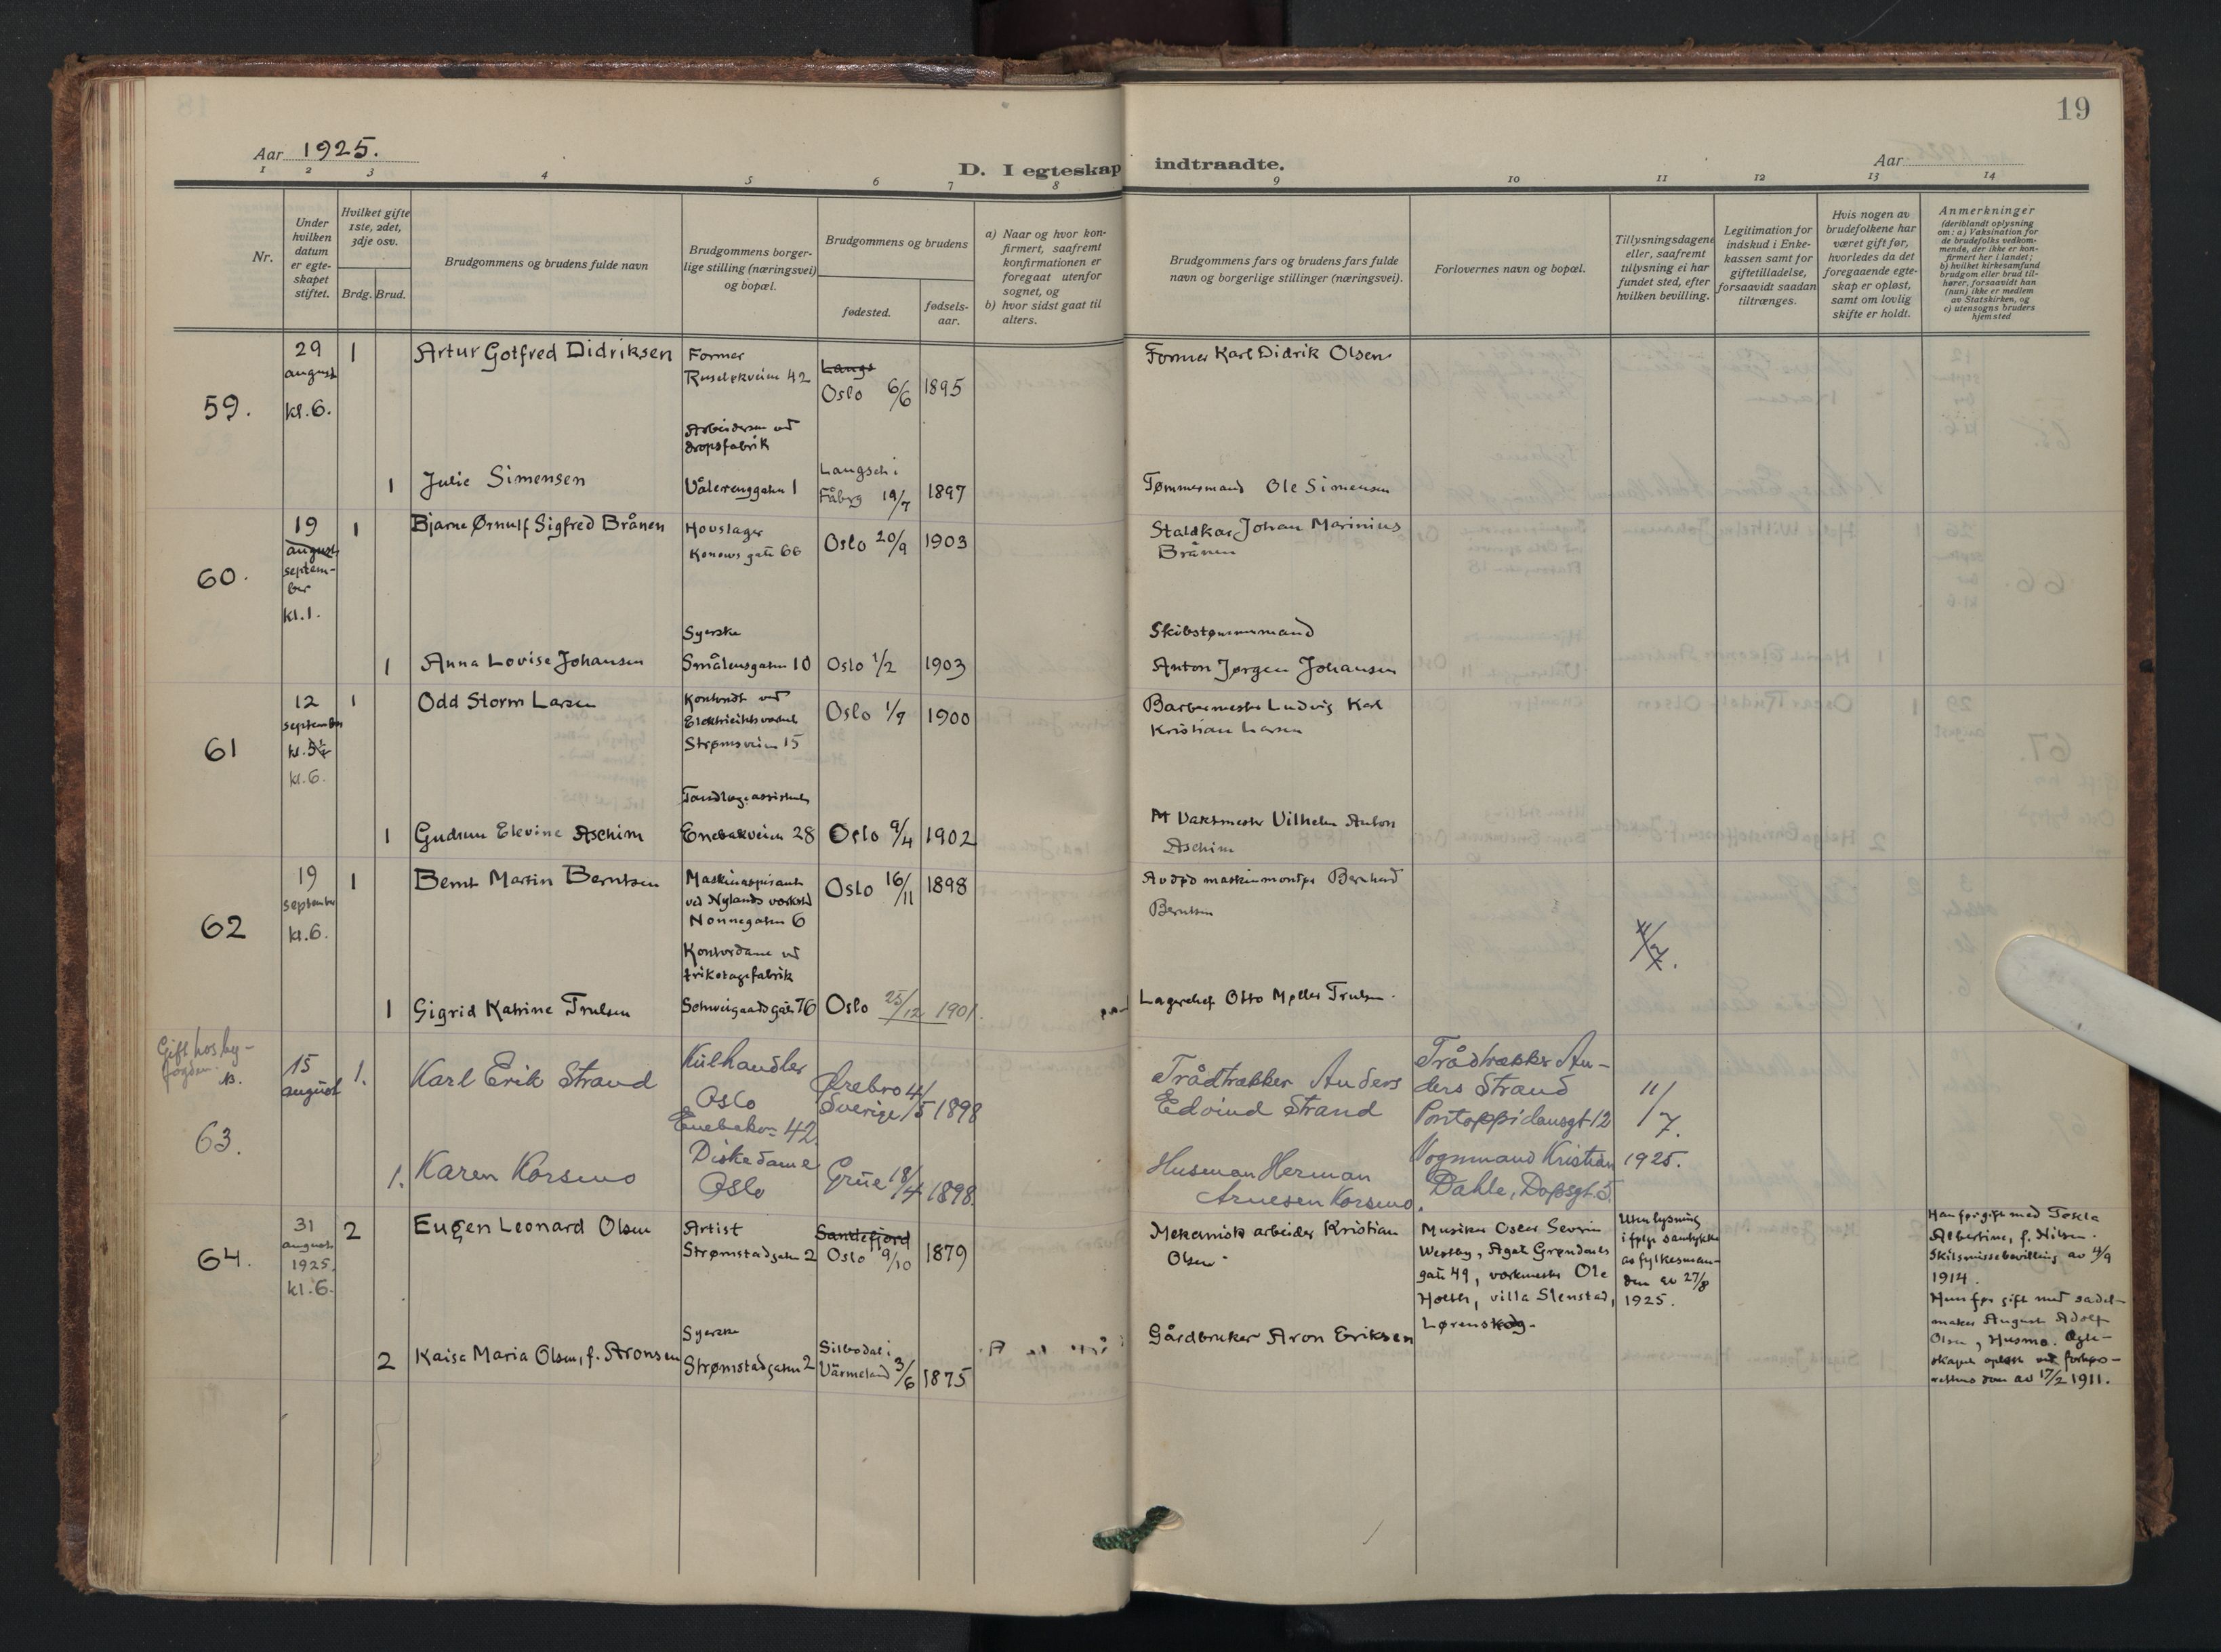 19
Aar 1925.
D. I egteskap indtraadte.
Aar
1 2 3 4 5 6 7 8 9 10 11 12 13 14
Nr.
Under
hvilken
datum
er egte-
skapet
stiftet.
Hvilket gifte
1ste, 2det,
3dje osv.
Brdg. Brud.
Brudgommens og brudens fulde navn
Brudgommens borger-
lige stilling (næringsvei)
og bopæl.
Brudgommens og brudens
fødested.
fødsels-
aar.
a) Naar og hvor kon-
firmert, saafremt
konfirmationen er
foregaat utenfor
sognet, og
b) hvor sidst gaat til
alters.
Brudgommens fars og brudens fars fulde
navn og borgerlige stillinger (næringsvei).
Forlovernes navn og bopæl.
Tillysningsdagene
eller, saafremt
tillysning ei har
fundet sted, efter
hvilken bevilling.
Legitimation for
indskud i Enke-
kassen samt for
giftetilladelse,
forsaavidt saadan
tiltrænges.
Hvis nogen av
brudefolkene har
været gift før,
hvorledes da det
foregaaende egte-
skap er opløst,
samt om lovlig
skifte er holdt.
Anmerkninger
(deriblandt oplysning
om: a) Vaksination for
de brudefolks vedkom-
mende, der ikke er kon-
firmert her i landet;
b) hvilket kirkesamfund
brudgom eller brud til-
hører, forsaavidt han
(hun) ikke er medlem
av Statskirken, og
c) utensogns bruders
hjemsted
59.
29
august
kl. 6.
1
Artur Gotfred Didriksen
Former
Ruseløkveien 42
Langs
Oslo 6/6
1895
Former Karl Didrik Olsen
Arbeiderske ved
dropsfabrik
1
Julie Simensen
Vålerenggaten 1
Langseth i
Fåberg 19/7
1897
Tømmermand Ole Simensen
60.
19
august
septem-
ber
kl. 1.
1
Bjarne Ørnulf Sigfred Brånen
Hovslager
Konows gate 66
Oslo 20/9
1903
Staldkar Johan Marinius
Brånen
Syerske
1
Anna Lovise Johansen
Smålensgaten 10
Oslo 1/2
1903
Skibstømmermand
Anton Jørgen Johansen
61
12
september
kl. 6.
1
Odd Storm Larsen
Kontorist ved
Elektricitetsverket
Strømsveien 15
Oslo 1/9
1900
Barbermester Ludvig Karl
Kristian Larsen
Tandlægeassistent
1
Gudrun Elevine Aschim
Enebakveien 28
Oslo 9/4
1902
Vaktmester Vilhelm Anton
Aschim
62
19
september
kl. 6.
1
Bernt Martin Berntsen
Maskinaspirant
ved Nylands verksted
Nonnegaten 6
Oslo 16/11
1898
Avdød maskinmontør Bernhard
Berntsen
Kontordame ved
trikotagefabrik
1
Sigrid Katrine Trulsen
Schweigaards gate 76
Oslo 25/12 1901.
Lagerchef Otto Møller Trulsen.
Gift hos by-
fogden.
63.
15
august
1.
Karl Erik Strand
Kulhandler
Oslo
Enebakv. 42
Ørebro 4/5
Sverige 1898
Trådtrækker Anders
Edvind Strand
Trådtrækker An-
ders Strand
Pontoppidansgt 12
11/7.
1925.
1.
Karen Korsmo
Diskedame
Oslo
Grue 18/4 1898.
Husman Herman
Arnesen Korsmo.
Vognmand Kristian
Dahle, Dopsgt. 5.
64.
31
august
1925.
kl. 6.
2
Eugen Leonard Olsen
Artist
Strømstadgaten 2
Sandefjord
Oslo 9/10
1879
Mekanisk arbeider Kristian
Olsen
Musiker Oscar Severin
Westby, Agate Grøndahls
gate 49, verkmester Ole
Holth, villa Slenstad,
Lørenskog.
Uten lysning
ifølge samtykke
av fylkesman-
den av 27/8
1925.
Han før gift med Tekla
Albertine, f. Nilsen.
Skilsmissebevilling av 4/9
1914.
Hun før gift med sadel-
maker August Adolf
Olsen, Husmo. Egte-
skapet opløst ved forhørs-
rettens dom av 17/2 1911.
2
Kaisa Maria Olsen, f. Aronsen
Syerske
Strømstadgaten 2
Silbodal i
Värmeland 3/6
1875
Gårdbruker Aron Eriksen